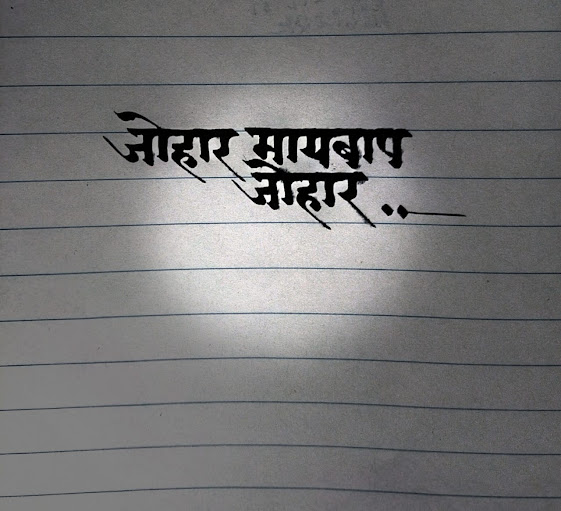 जोहार मायबाप
जोहार ..